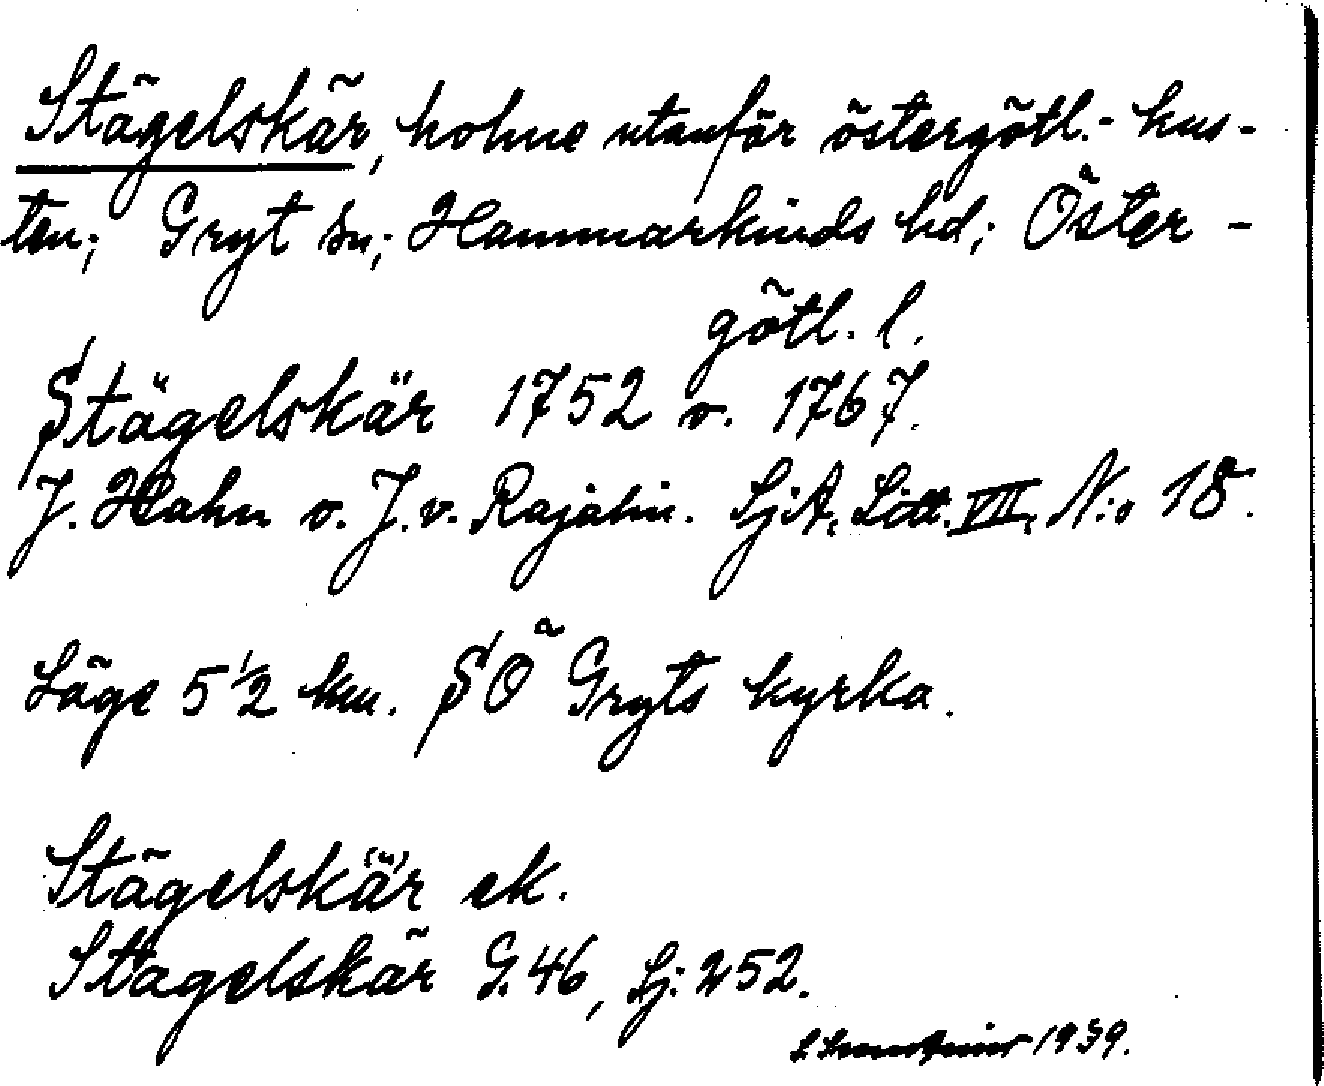 Stägelskär, holme utanför östergötl.- kus-
ten; Gryt sn; Hammarkinds hd; Öster-
götl. l.
Stägelskär 1752 o. 1767.
J. Hahn o. J. v. Rajalin. SjA. Litt. VII, N:o 18.
Läge 5 1/2 km. SÖ Gryts kyrka.
Stägelskär ek.
Stagelskär G. 46, Sj: 252.
1939.